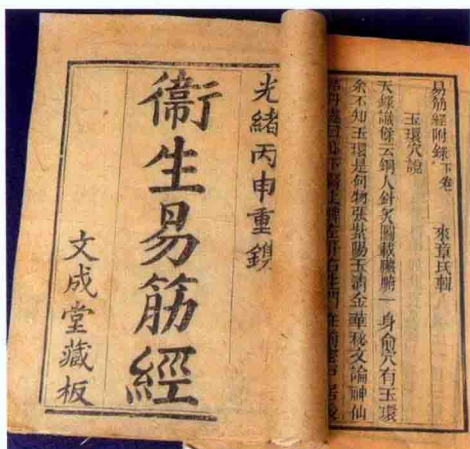 光緒丙申重鐫
衞生易筋經
文成堂藏板
易筋經附錄下卷 來章氏輯
玉環穴說
天錄識餘云銅人針灸圖載臟腑一身俞穴有玉環
余不知玉環是何物張紫陽玉清金華秘文論神仙